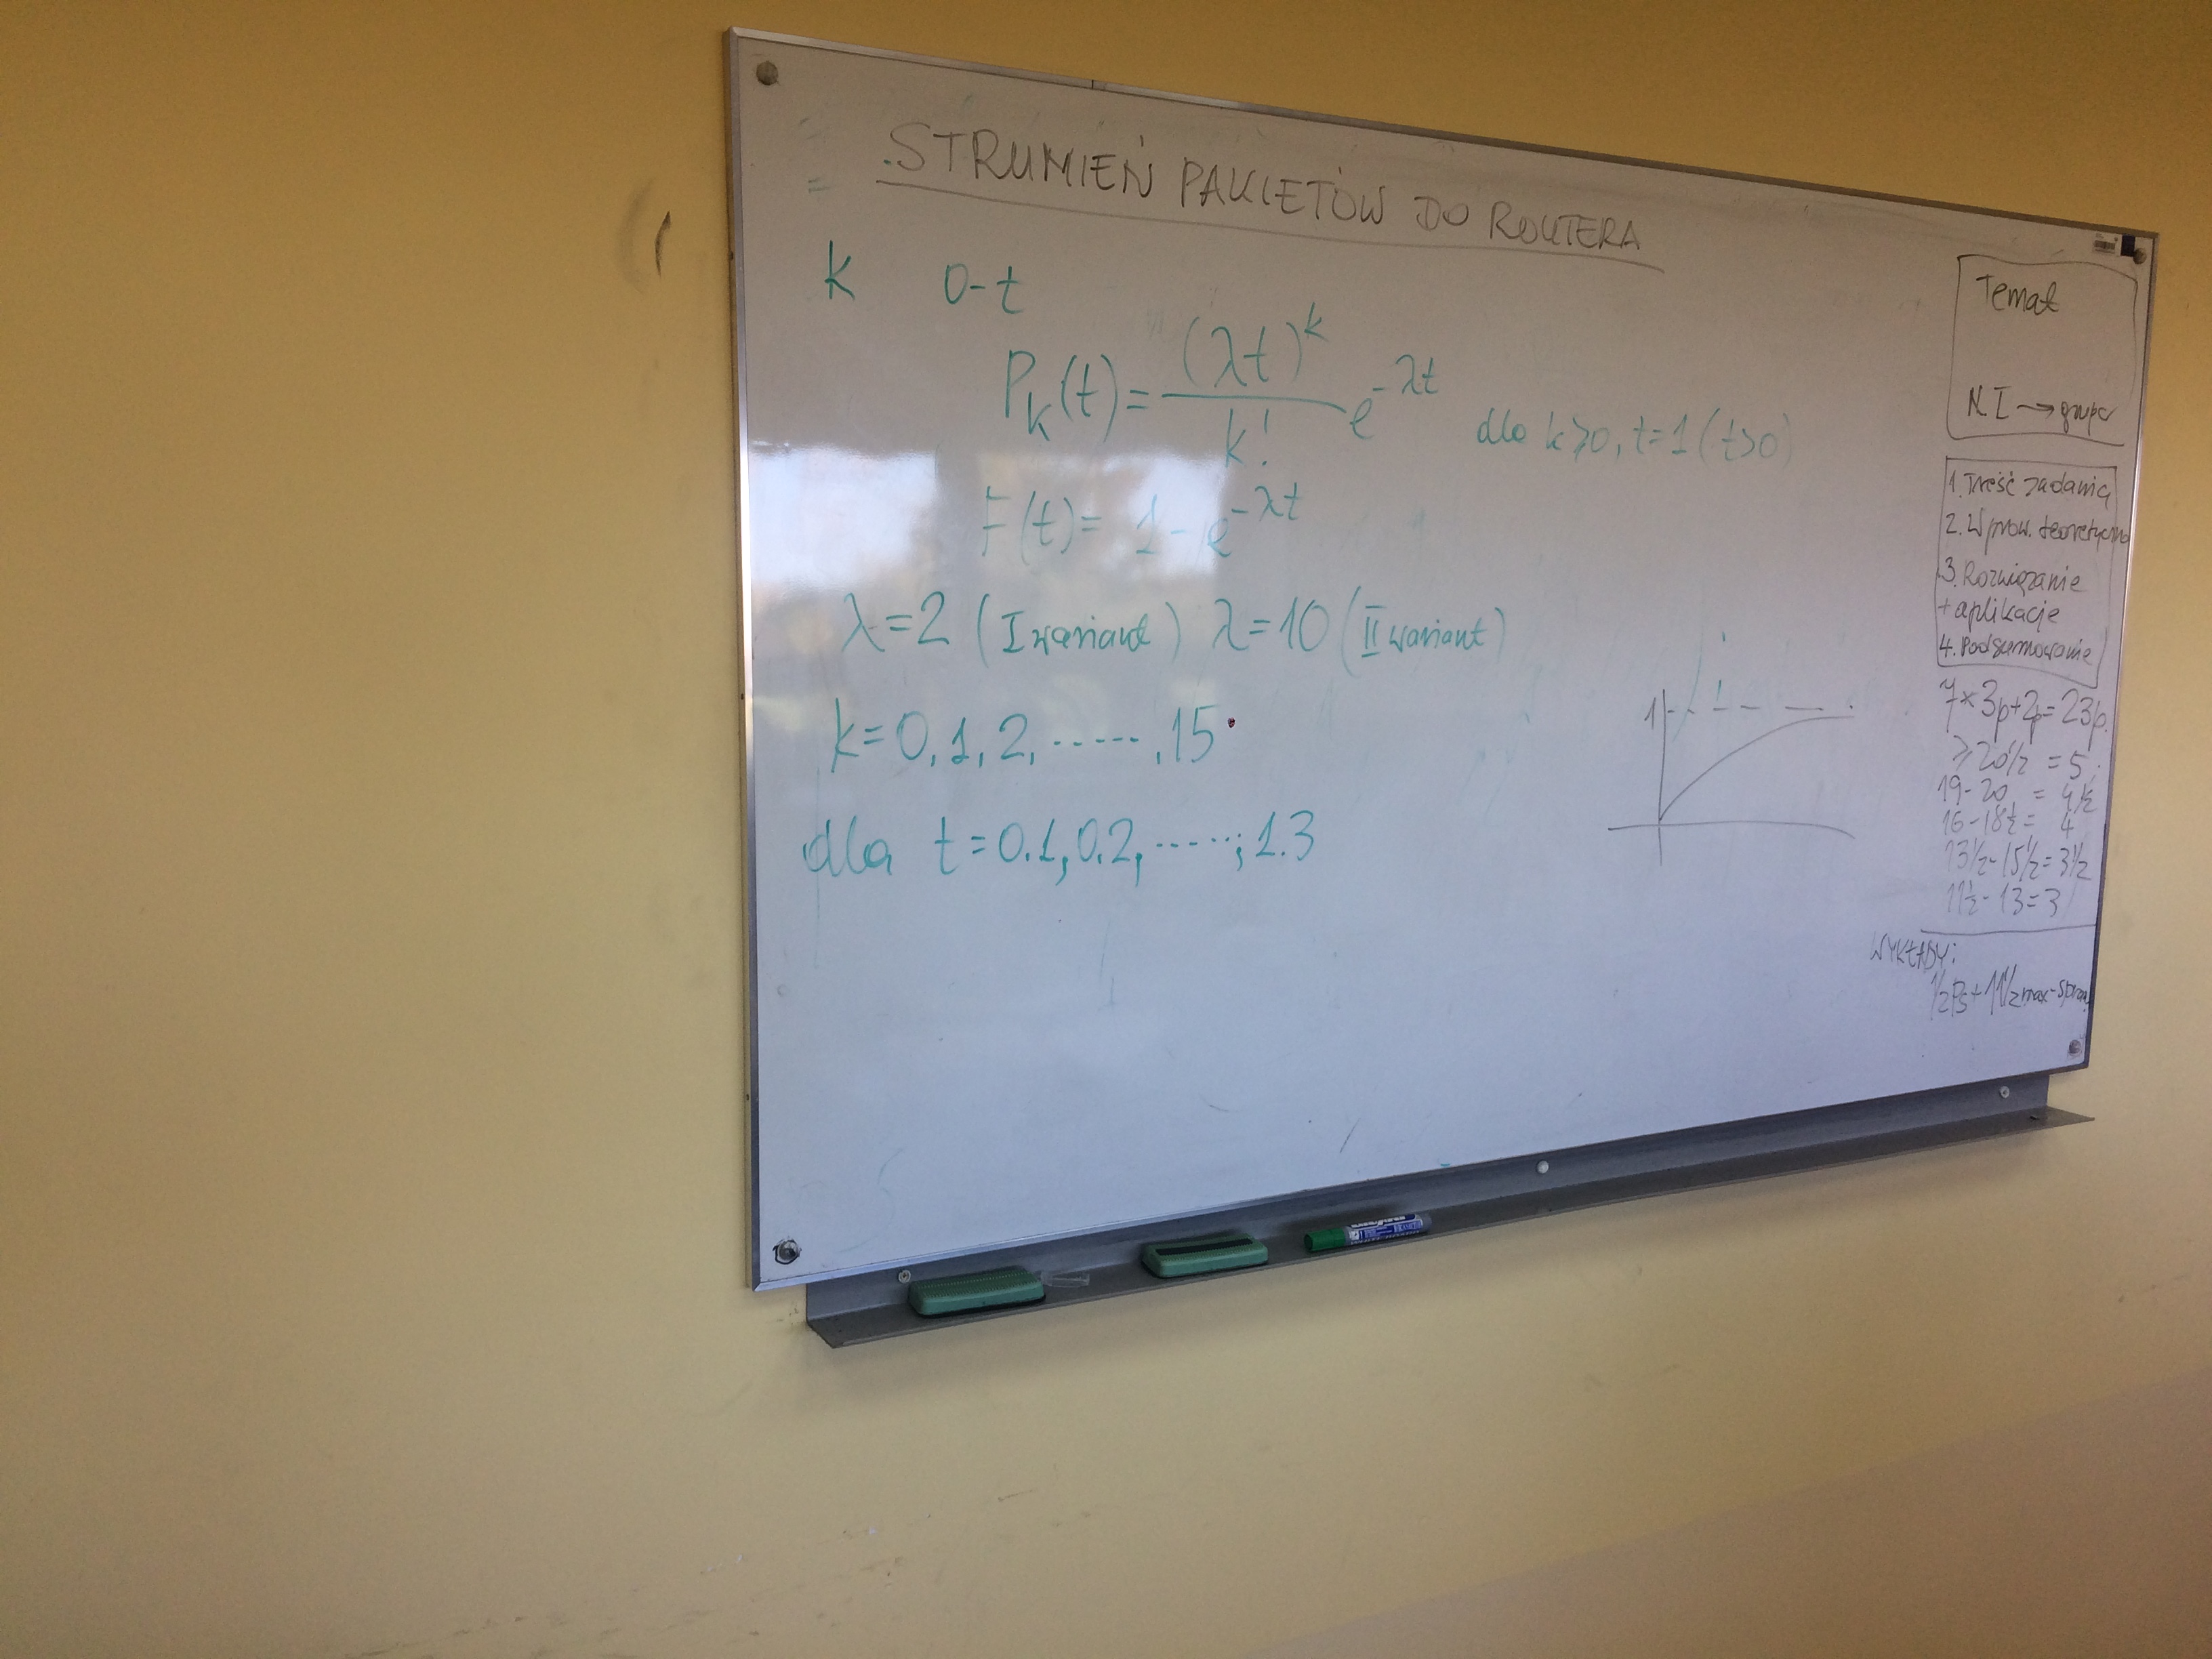 STRUMIEŃ PAKIETÓW DO ROUTERA
k 0-t
P_k(t) = (λt)^k / k! e^{-λt} dla k≥0, t=1 (t>0)
F(t) = 1 - e^{-λt}
λ=2 (I wariant) λ=10 (II wariant)
k=0,1,2,.....,15
dla t=0.1,0.2,.....;1.3
1
Temat
N.I → grupa
1. Treść zadania
2. Wprow. teoretyczne
3. Rozwiązanie
+ aplikacje
4. Podsumowanie
7×3p+2p=23p.
≥20½ = 5
19-20 = 4½
16-18½ = 4
13½-15½=3½
11½-13=3
WYKŁADY: